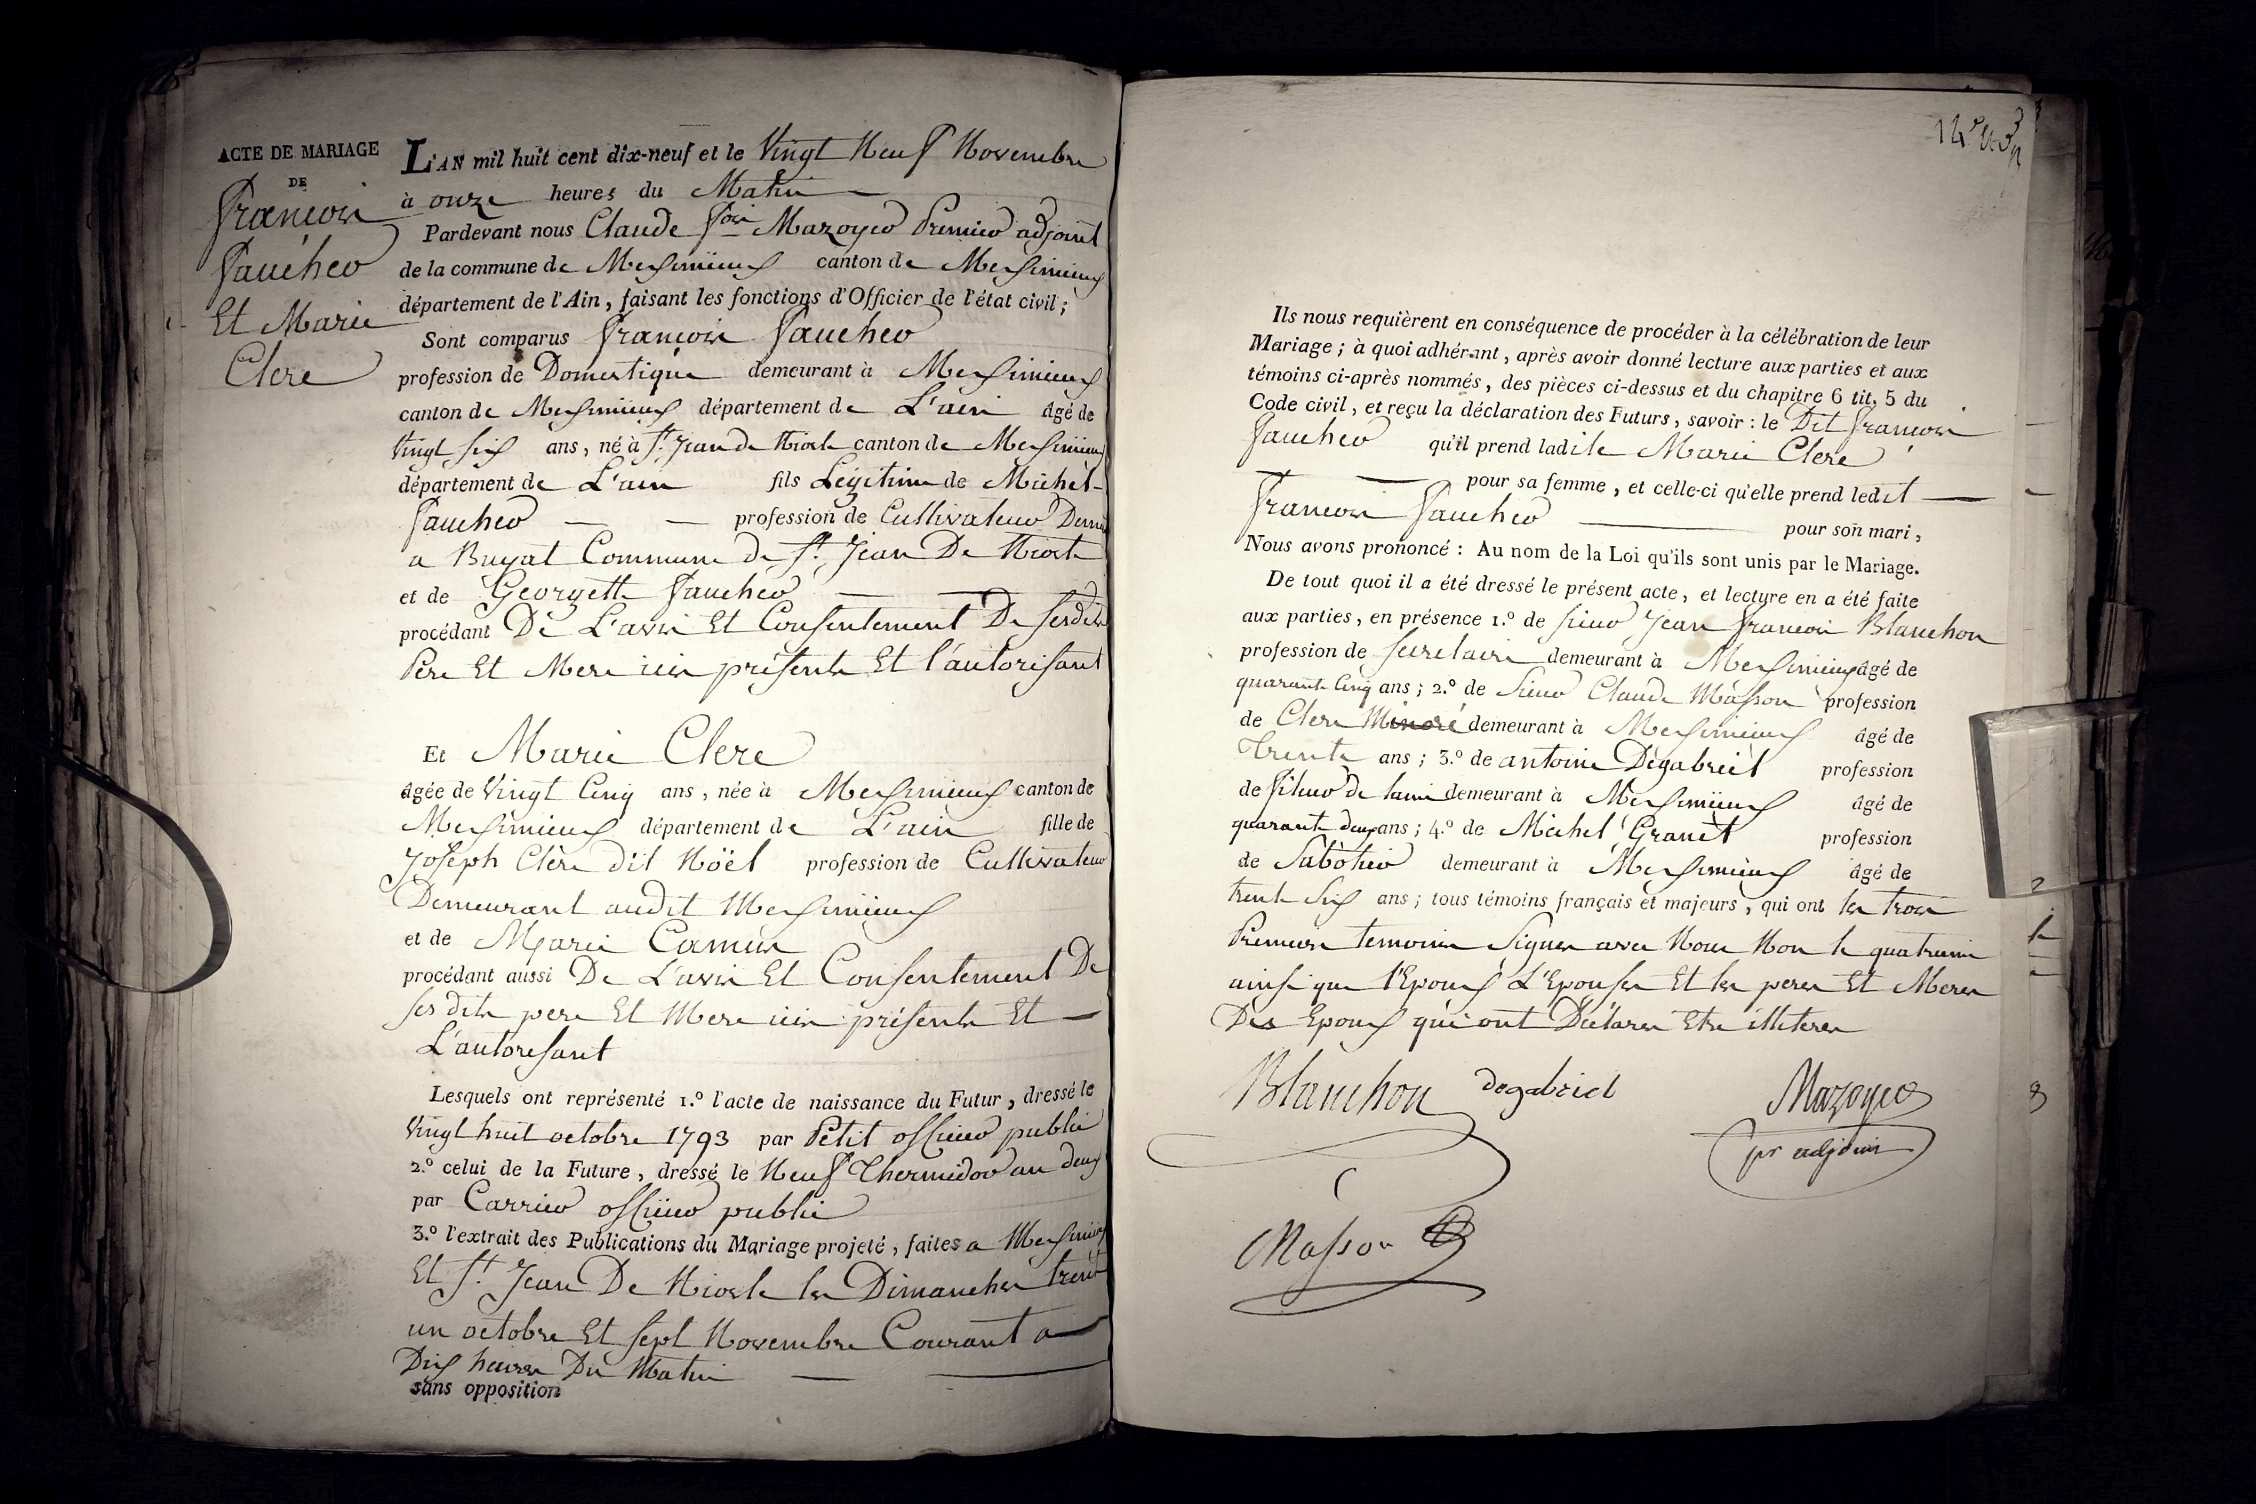 ACTE DE MARIAGE
DE
françois
faucher
Et Marie
Clerc
L'AN mil huit cent dix-neuf et le Vingt Neuf Novembre
à onze heures du Matin
Pardevant nous Claude fois Mazoyer Premier adjoint
de la commune de Meximieux canton de Meximieux
département de l'Ain, faisant les fonctions d'Officier de l'état civil;
Sont comparus françois faucher
profession de Domestique demeurant à Meximieux
canton de Meximieux département de L'ain âgé de
Vingt six ans, né à St. Jean de Niost canton de Meximieux
département de L'ain fils Légitime de Michel
faucher profession de Cultivateur Demt
a Buyat Commune de St. Jean De Niost
et de Georgette faucher
procédant De L'avis Et Consentement De sesdits
Pere Et Mere ici présents Et l'autorisant
Et Marie Clerc
âgée de Vingt Cinq ans, née à Meximieux canton de
Meximieux département de L'ain fille de
Joseph Clerc dit Noël profession de Cultivateur
Demeurant audit Meximieux
et de Marie Camus
procédant aussi De L'avis Et Consentement De
ses dits pere Et Mere ici présents Et
L'autorisant
Lesquels ont représenté 1.º l'acte de naissance du Futur, dressé le
Vingt huit octobre 1793 par Petit officier public
2.º celui de la Future, dressé le Neuf Thermidor an deux
par Carrier officier public
3.º l'extrait des Publications du Mariage projeté, faites a Meximieux
Et St. Jean De Niost les Dimanches trente
un octobre Et sept Novembre Courant a
Dix heures Du Matin
sans opposition
Ils nous requièrent en conséquence de procéder à la célébration de leur
Mariage; à quoi adhérant, après avoir donné lecture aux parties et aux
témoins ci-après nommés, des pièces ci-dessus et du chapitre 6 tit. 5 du
Code civil, et reçu la déclaration des Futurs, savoir: le Dit françois
faucher qu'il prend ladite Marie Clerc
pour sa femme, et celle-ci qu'elle prend ledit
françois faucher pour son mari,
Nous avons prononcé: Au nom de la Loi qu'ils sont unis par le Mariage.
De tout quoi il a été dressé le présent acte, et lecture en a été faite
aux parties, en présence 1.º de sieur Jean françois Blanchon
profession de secretaire demeurant à Meximieux âgé de
quarante Cinq ans; 2.º de Sieur Claude Masson profession
de Clerc Minoré demeurant à Meximieux âgé de
Trente ans; 3.º de antoine Dégabriel profession
de fileur de laine demeurant à Meximieux âgé de
quarante deux ans; 4.º de Michel Granet profession
de Sabotier demeurant à Meximieux âgé de
trente six ans; tous témoins français et majeurs, qui ont les trois
Premiers temoins Signés avec Nous Non le quatrieme
ainsi que l'Epoux L'Epouse Et les peres Et Meres
Des Epoux qui ont Déclarés Etre illiteres
Blanchon degabriel Mazoyer
pr adjoint
Masson